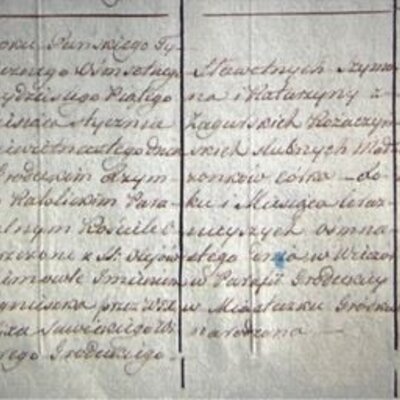 oku Pańskiego Ty-
cznego Osmsetnego
ydziestego Piątego
iesiąca stycznia
ewiętnastego dnia
Grodeckim Rzym
o Katolickim Para-
alnym Kościele
rzczone z St. olejów
imowle Imieniem
gnieszka przez
Sawickiego
rego Grodeckiego
Sławetnych Szymo
na i Katarzyny z
Zagurskich Kozaczyn
skich slubnych Mał
żonków córka — do
ku i Miesiąca teraz
nieyszych osmna
stego dnia w Wieczor
w Parafii Grodeckiey
w Miasteczku Grodku
narodzona —